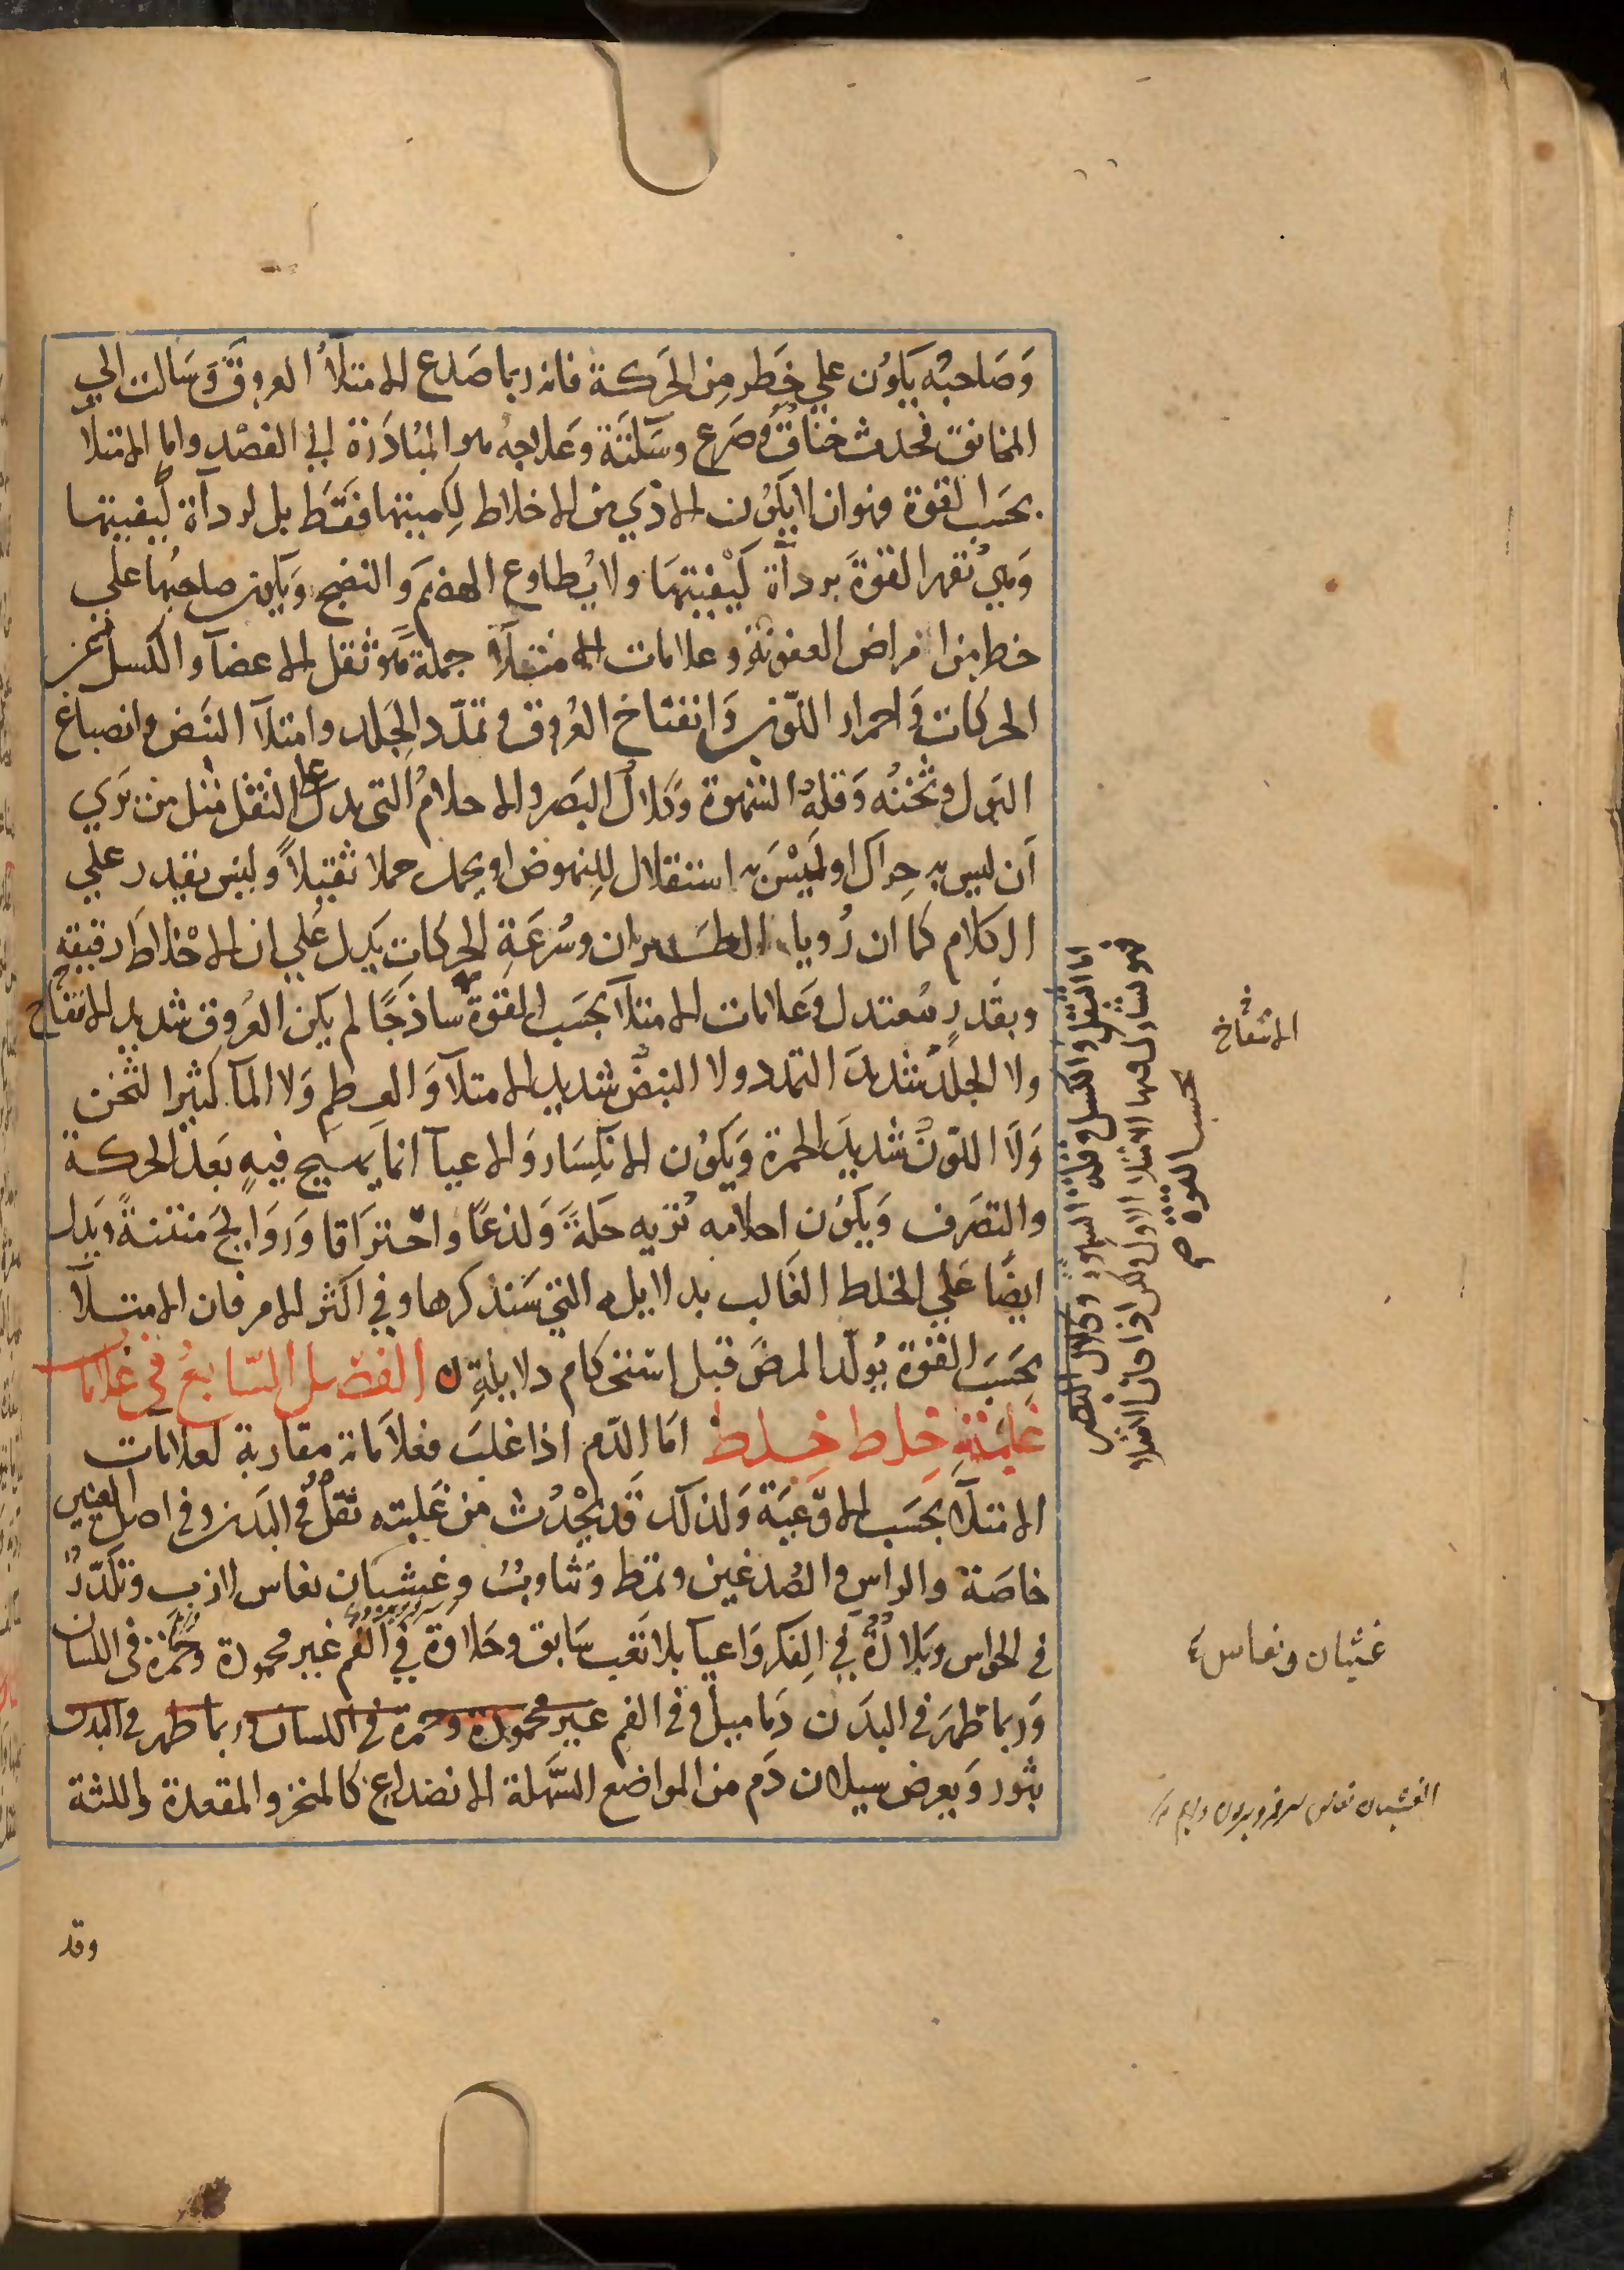 وَصَاحبُه يَكوُن علي خَطَر مِن الحَركة فانه ربما صَدع الامتلآُ العروقَ وَسَالت الي
المخانق فحدث خناقٌ وصَرع وسَكتَة وَعلاجهُ هو المبُادَرَة الي الفصْد واما الامتلآ
بحَسَب القوة فهوان لايكَوُن الاذي من الاخلاط لِكميتها فقَط بل لردآة كيفيتها
وَهي تقهر القوةَ بردآة كَيْفيتهَا ولا يُطاوع الهضمَ وَالنضج وَيكون صاحبُها علي
خطر من امراض العفونة وعلامات الامتلآ جملة هو ثقل الاعضآ والكسل عن
الحركات وَاحمرار اللّون وَانتفاخ العُروق وتمدّد الجِلد وامتلآ النَبض وانصباغ
البَول وثخنُه وَقلةُ الشهوة وَكلالُ البَصر والاحلامُ التي تدل علي الثقل مثل من يَري
اَن ليس به حِراك او لَيْسَ به استقلال لِلنهوض او يحمل حملا ثقيلاً وليس يقدر علي
الكلام كما ان رُويا الطَيران وسُرعَةِ الحركاتِ يَدل عَلي ان الاخْلاطَ رقيقة
وبقَدرٍ مُعتدل وَعَلامات الامتلآ بحَسَب القوة ساذَجًا لم يكن العُروق شديد الانتفاخ
ولا الجلدُ شديدَ التمدد ولا النبضُ شديد الامتلآ وَالعظم وَلا المآ كثير الثخن
وَلاَ اللّونُ شديدَ الحمرة وَيَكوُن الانكِسَار وَالاعيآ انما يهيج فيهِ بَعدَ الحركة
والتصَرف وَيكَوُن احلامه تُريه حَكةً وَلذعًا واحْتراَقا وَرَوَايحَ منتنةً ويَدل
ايضًا عَلي الخلط الغَالب بدلايله التي سَنذكرها وفي اكثر الامر فان الامتلآ
بحَسَبَ القوة يُولّد المرضَ قبل استحكام دلايلةِ الفصْل السّابعُ في عَلامات
غلبَةِ خِلط خِلط اَمَا الدّم اذا غلبَ فعَلاَماته مقاربة لعلامات
الامتلآ بحَسَب الاَوْعيَة وَلذلك قَد يَحْدُث من غَلبته ثقلٌ في البَدن وفي اصل العينين
خاصَة والراسِ والصُدغين وتمَط وَتثاوبُ وغَشيان نعاس لازب وتكَدّرُ
في الحواس وَبَلادُةُ في الِفكر وَاعيآ بلاتَعَب سَابق وحَلاوة في الفم غير محمودة وحُمَرة في اللسان
وَربما ظهرَ في البدَن دَماميل وفي الفم غير محمودة وحمرة في اللسان وربما ظهر في البدن
بثور وَيعرض سيلان دَم من المواضع السَّهلة الانصداع كالمنخر والمقعدة واللثة
وقد
اما الثقل والكسل وقلة الشهوة وكلال البصر
فهو تشارك فيها الامتلاء الاول ولكن اذا كان امتلاء
بحسب القوة صح
الانتفاخ
غثيان ونعاس